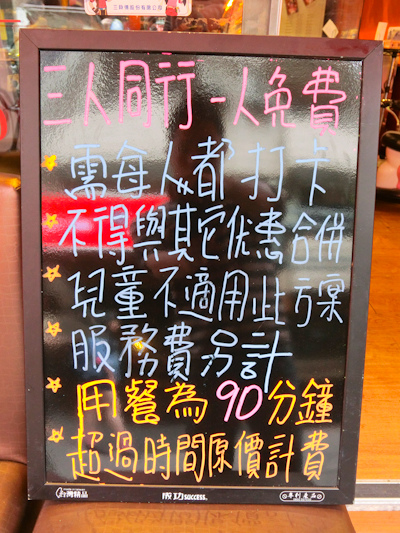 三人同行一人免費
需每人都打卡
不得與其它优惠合併
兒童不適用此方案
服務費另計
用餐為90分鐘
超過時間原價計費
台灣精品 成功 success. 專利產品